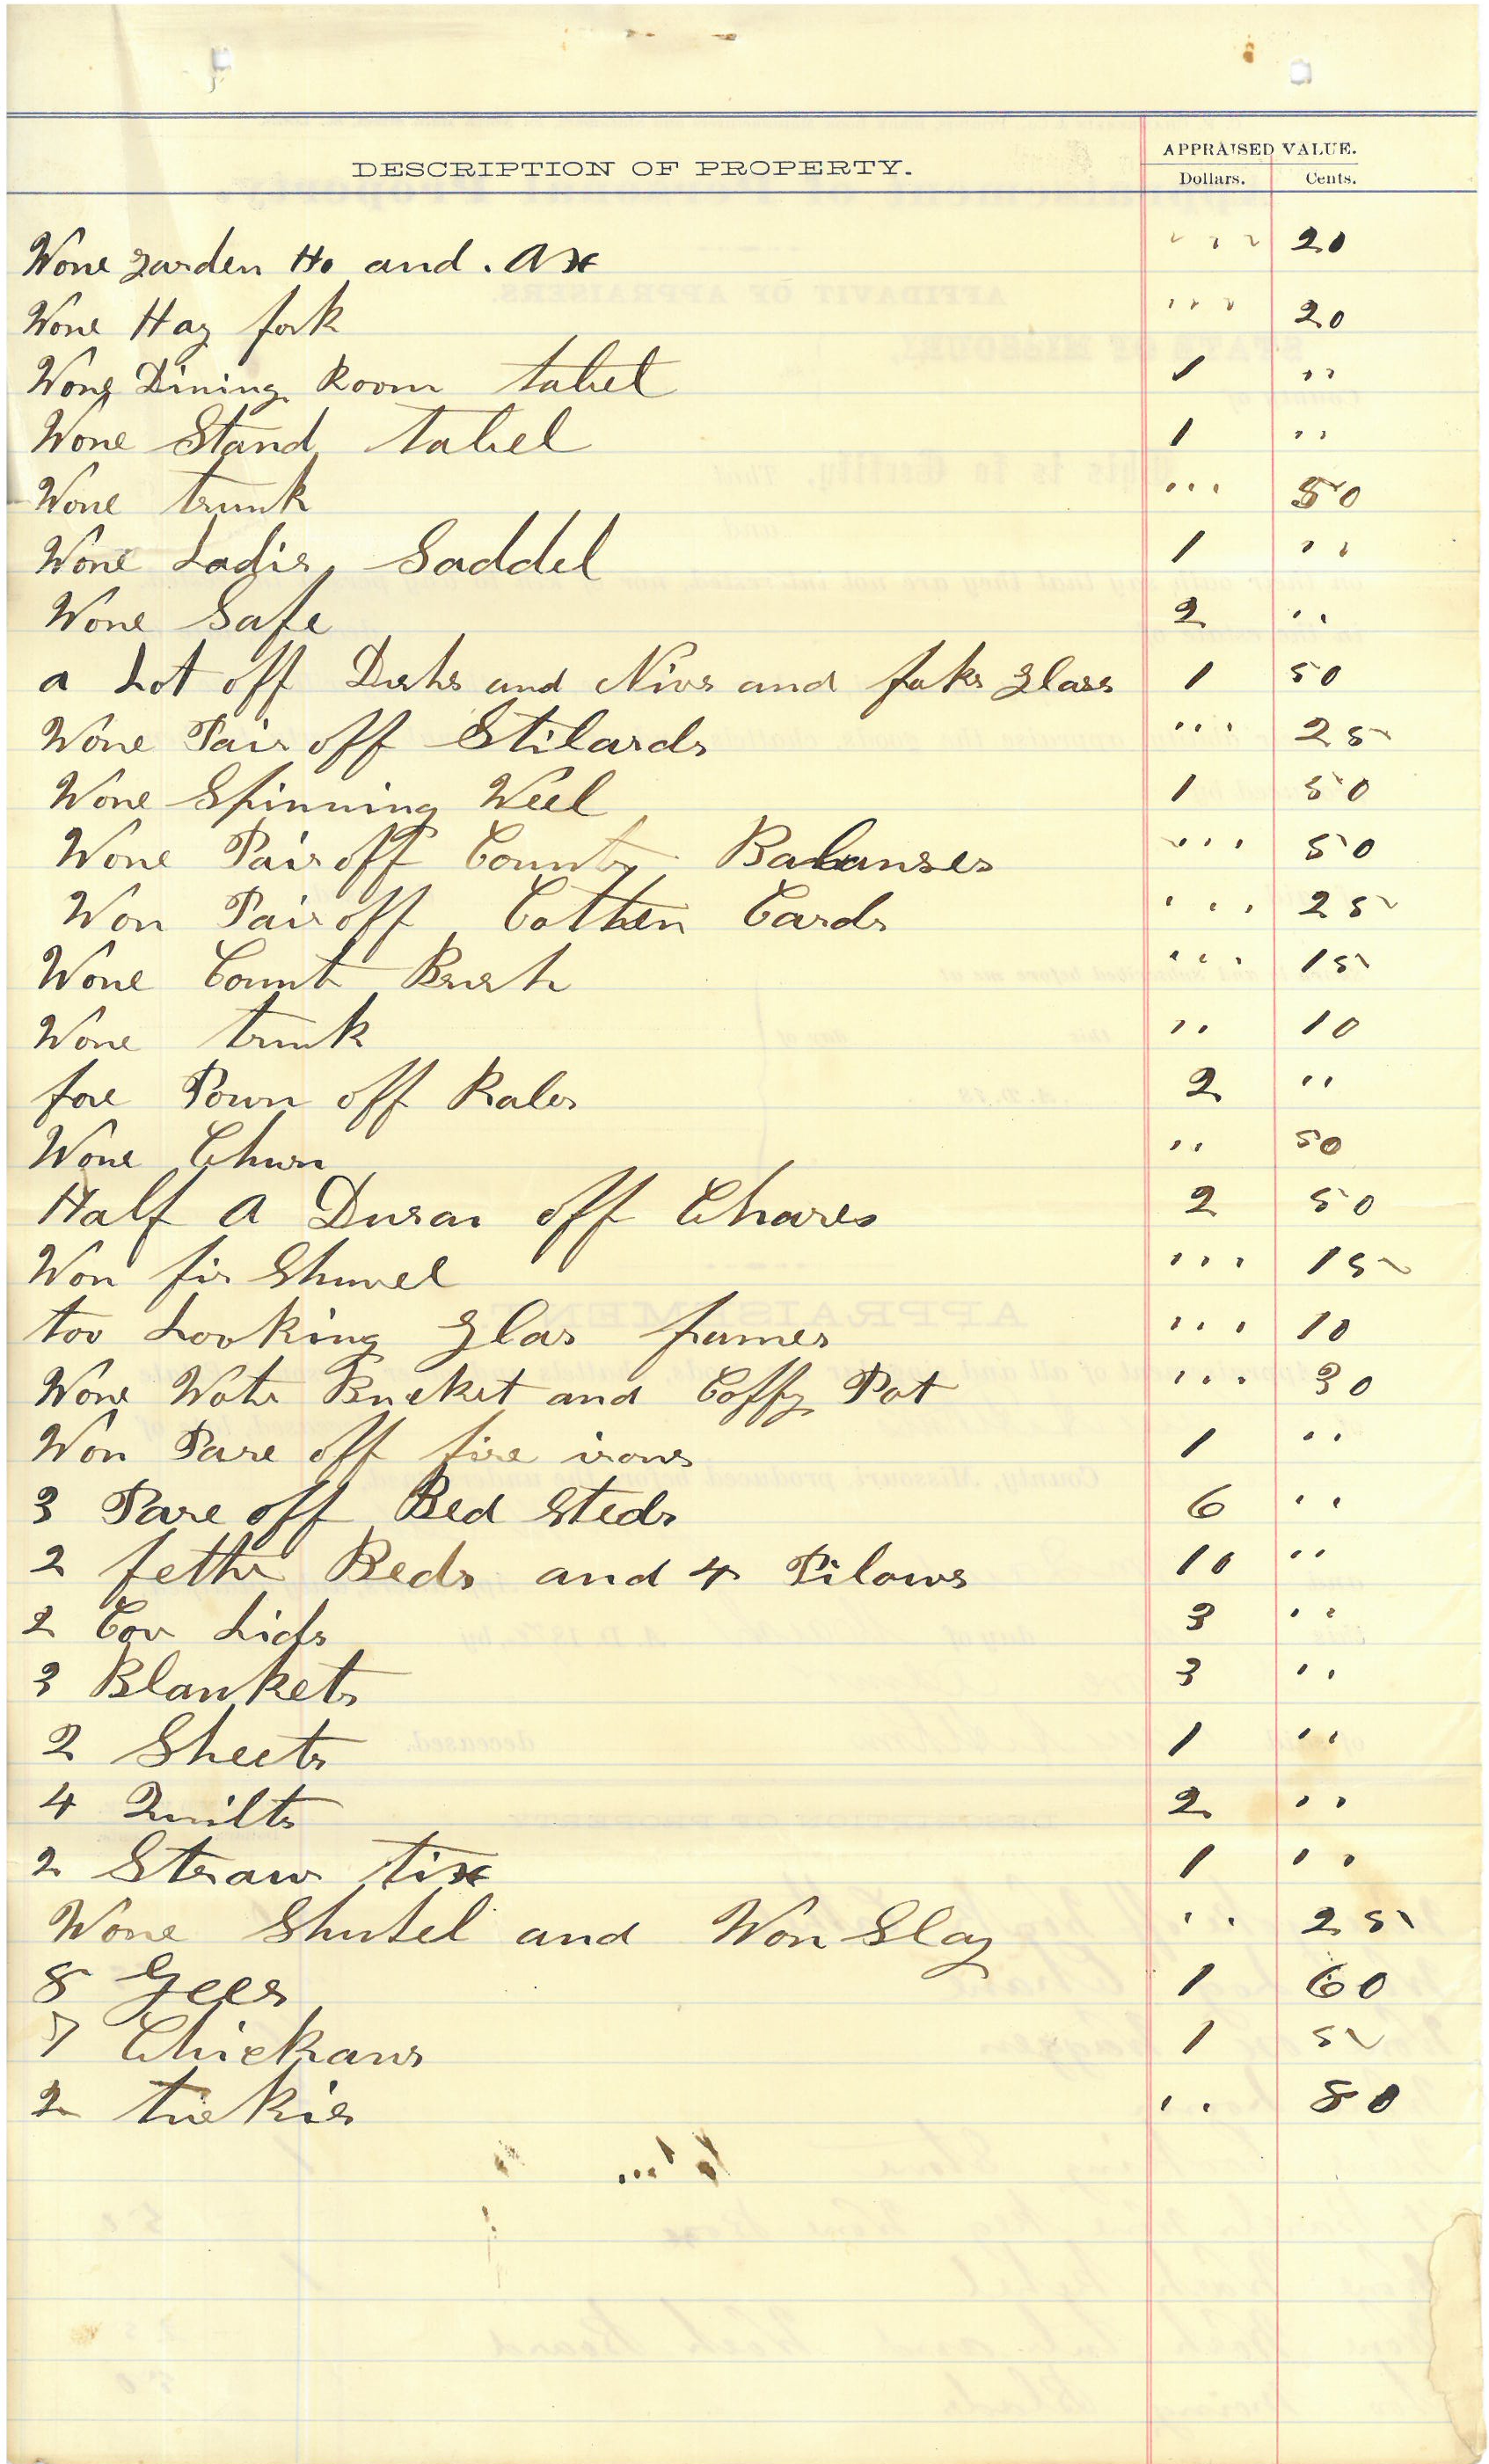 DESCRIPTION OF PROPERTY.
APPRAISED VALUE.
Dollars. Cents.
Wone garden Ho and . Ax " " " 20
Wone Hay fork " " " 20
Wone Dining Room tabel 1 " "
Wone Stand tabel 1 " "
Wone trunk " " " 50
Wone Ladis Saddel 1 " "
Wone Safe 2 " "
a Lot off Dishs and Nivs and foks glass 1 50
Wone Pair off Stilards " " " 25
Wone Spinning Weel 1 50
Wone Pair off County Balanses " " " 50
Won Pair off Cotten Cards " " " 25
Wone Brush " " " 15
Wone trunk " " 10
foe Poun off Rales 2 " "
Wone Churn " " 50
Half A Dusan off Chares 2 50
Won fir Shuvel " " " 15
too Looking glas frames " " " 10
Wone Wate Bucket and Coffy Pot " " " 30
Won Pare off fire irons 1 " "
3 Pare off Bed Steds 6 " "
2 fethe Beds and 4 Pilows 10 " "
2 Cov Lids 3 " "
3 Blankets 3 " "
2 Sheets 1 " "
4 Quilts 2 " "
2 Straw tix 1 " "
Wone Shutel and Won Slay " " 25
8 Gees 1 60
7 Chickans 1 5
2 tirkies " " 80